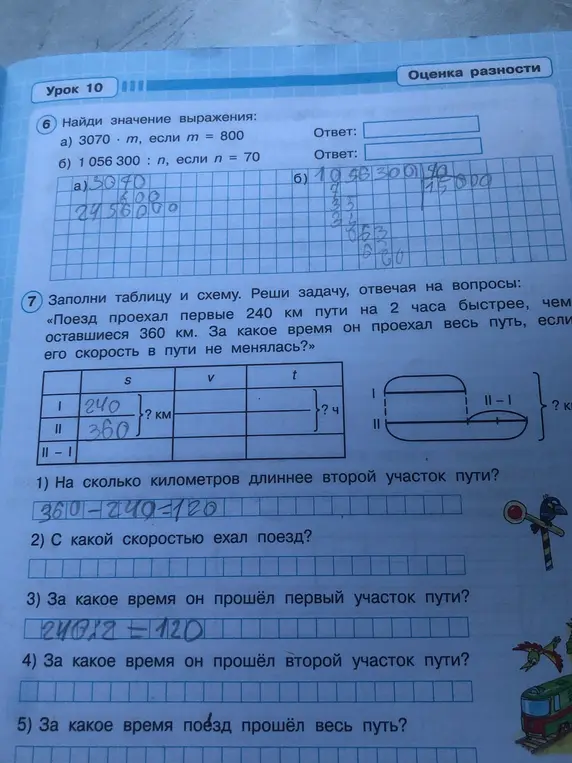 Урок 10
Оценка разности
6 Найди значение выражения:
а) 3070 · m, если m = 800
Ответ:
б) 1 056 300 : n, если n = 70
Ответ:
а) 3070
800
2456000
б) 1056300
7 Заполни таблицу и схему. Реши задачу, отвечая на вопросы:
«Поезд проехал первые 240 км пути на 2 часа быстрее, чем
оставшиеся 360 км. За какое время он проехал весь путь, если
его скорость в пути не менялась?»
s v t
I 240
II 360
? км
? ч
II – I
I
II
II – I
?
1) На сколько километров длиннее второй участок пути?
360-240=120
2) С какой скоростью ехал поезд?
3) За какое время он прошёл первый участок пути?
240:2=120
4) За какое время он прошёл второй участок пути?
5) За какое время поезд прошёл весь путь?